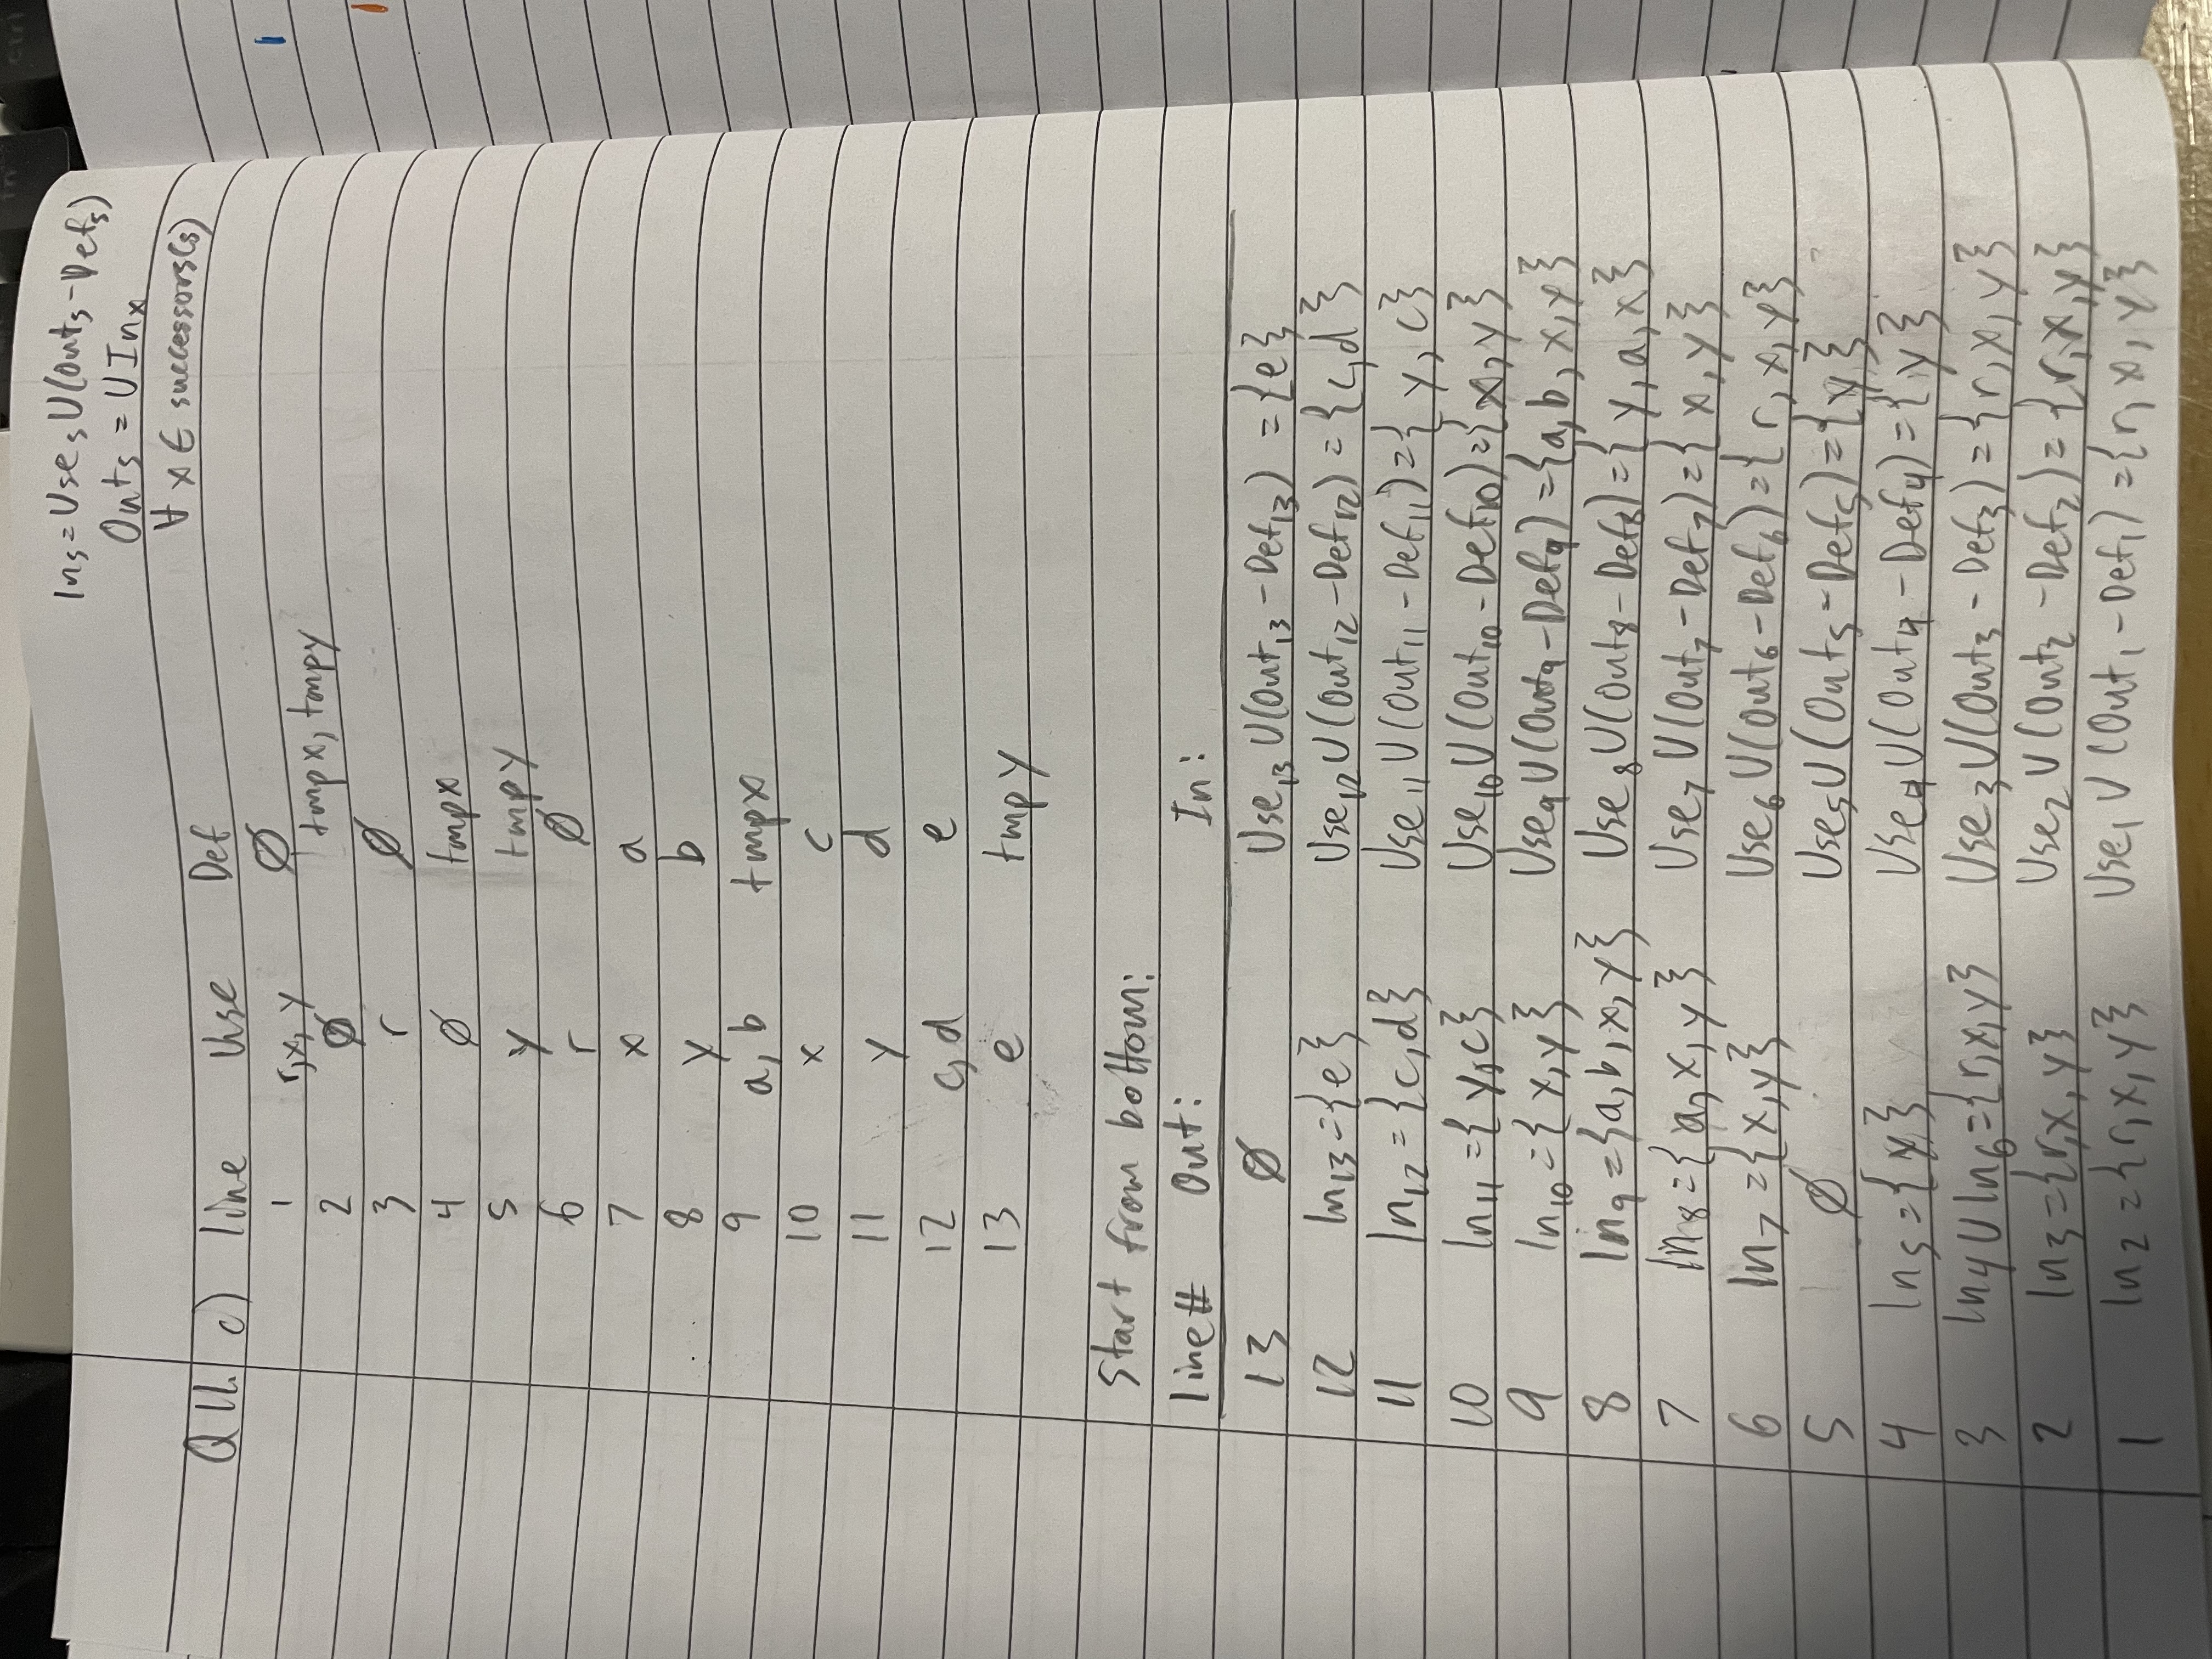 Inₛ = Useₛ U (Outₛ - Defₛ)
Outₛ = U Inₓ
∀ x ∈ successors(s)
Q11. c) line Use Def
1 r, x, y ∅
2 ∅ tmpx, tmpy
3 r ∅
4 ∅ tmpx
5 y tmpy
6 r ∅
7 x a
8 y b
9 a, b tmpx
10 x c
11 y d
12 c, d e
13 e tmpy
Start from bottom:
line # Out: In:
13 ∅ Use₁₃ U (Out₁₃ - Def₁₃) = {e}
12 In₁₃ = {e} Use₁₂ U (Out₁₂ - Def₁₂) = {c, d}
11 In₁₂ = {c, d} Use₁₁ U (Out₁₁ - Def₁₁) = {y, c}
10 In₁₁ = {y, c} Use₁₀ U (Out₁₀ - Def₁₀) = {x, y}
9 In₁₀ = {x, y} Use₉ U (Out₉ - Def₉) = {a, b, x, y}
8 In₉ = {a, b, x, y} Use₈ U (Out₈ - Def₈) = {y, a, x}
7 In₈ = {a, x, y} Use₇ U (Out₇ - Def₇) = {x, y}
6 In₇ = {x, y} Use₆ U (Out₆ - Def₆) = {r, x, y}
5 ∅ Use₅ U (Out₅ - Def₅) = {y}
4 In₅ = {y} Use₄ U (Out₄ - Def₄) = {y}
3 In₄ U In₆ = {r, x, y} Use₃ U (Out₃ - Def₃) = {r, x, y}
2 In₃ = {r, x, y} Use₂ U (Out₂ - Def₂) = {r, x, y}
1 In₂ = {r, x, y} Use₁ U (Out₁ - Def₁) = {r, x, y}